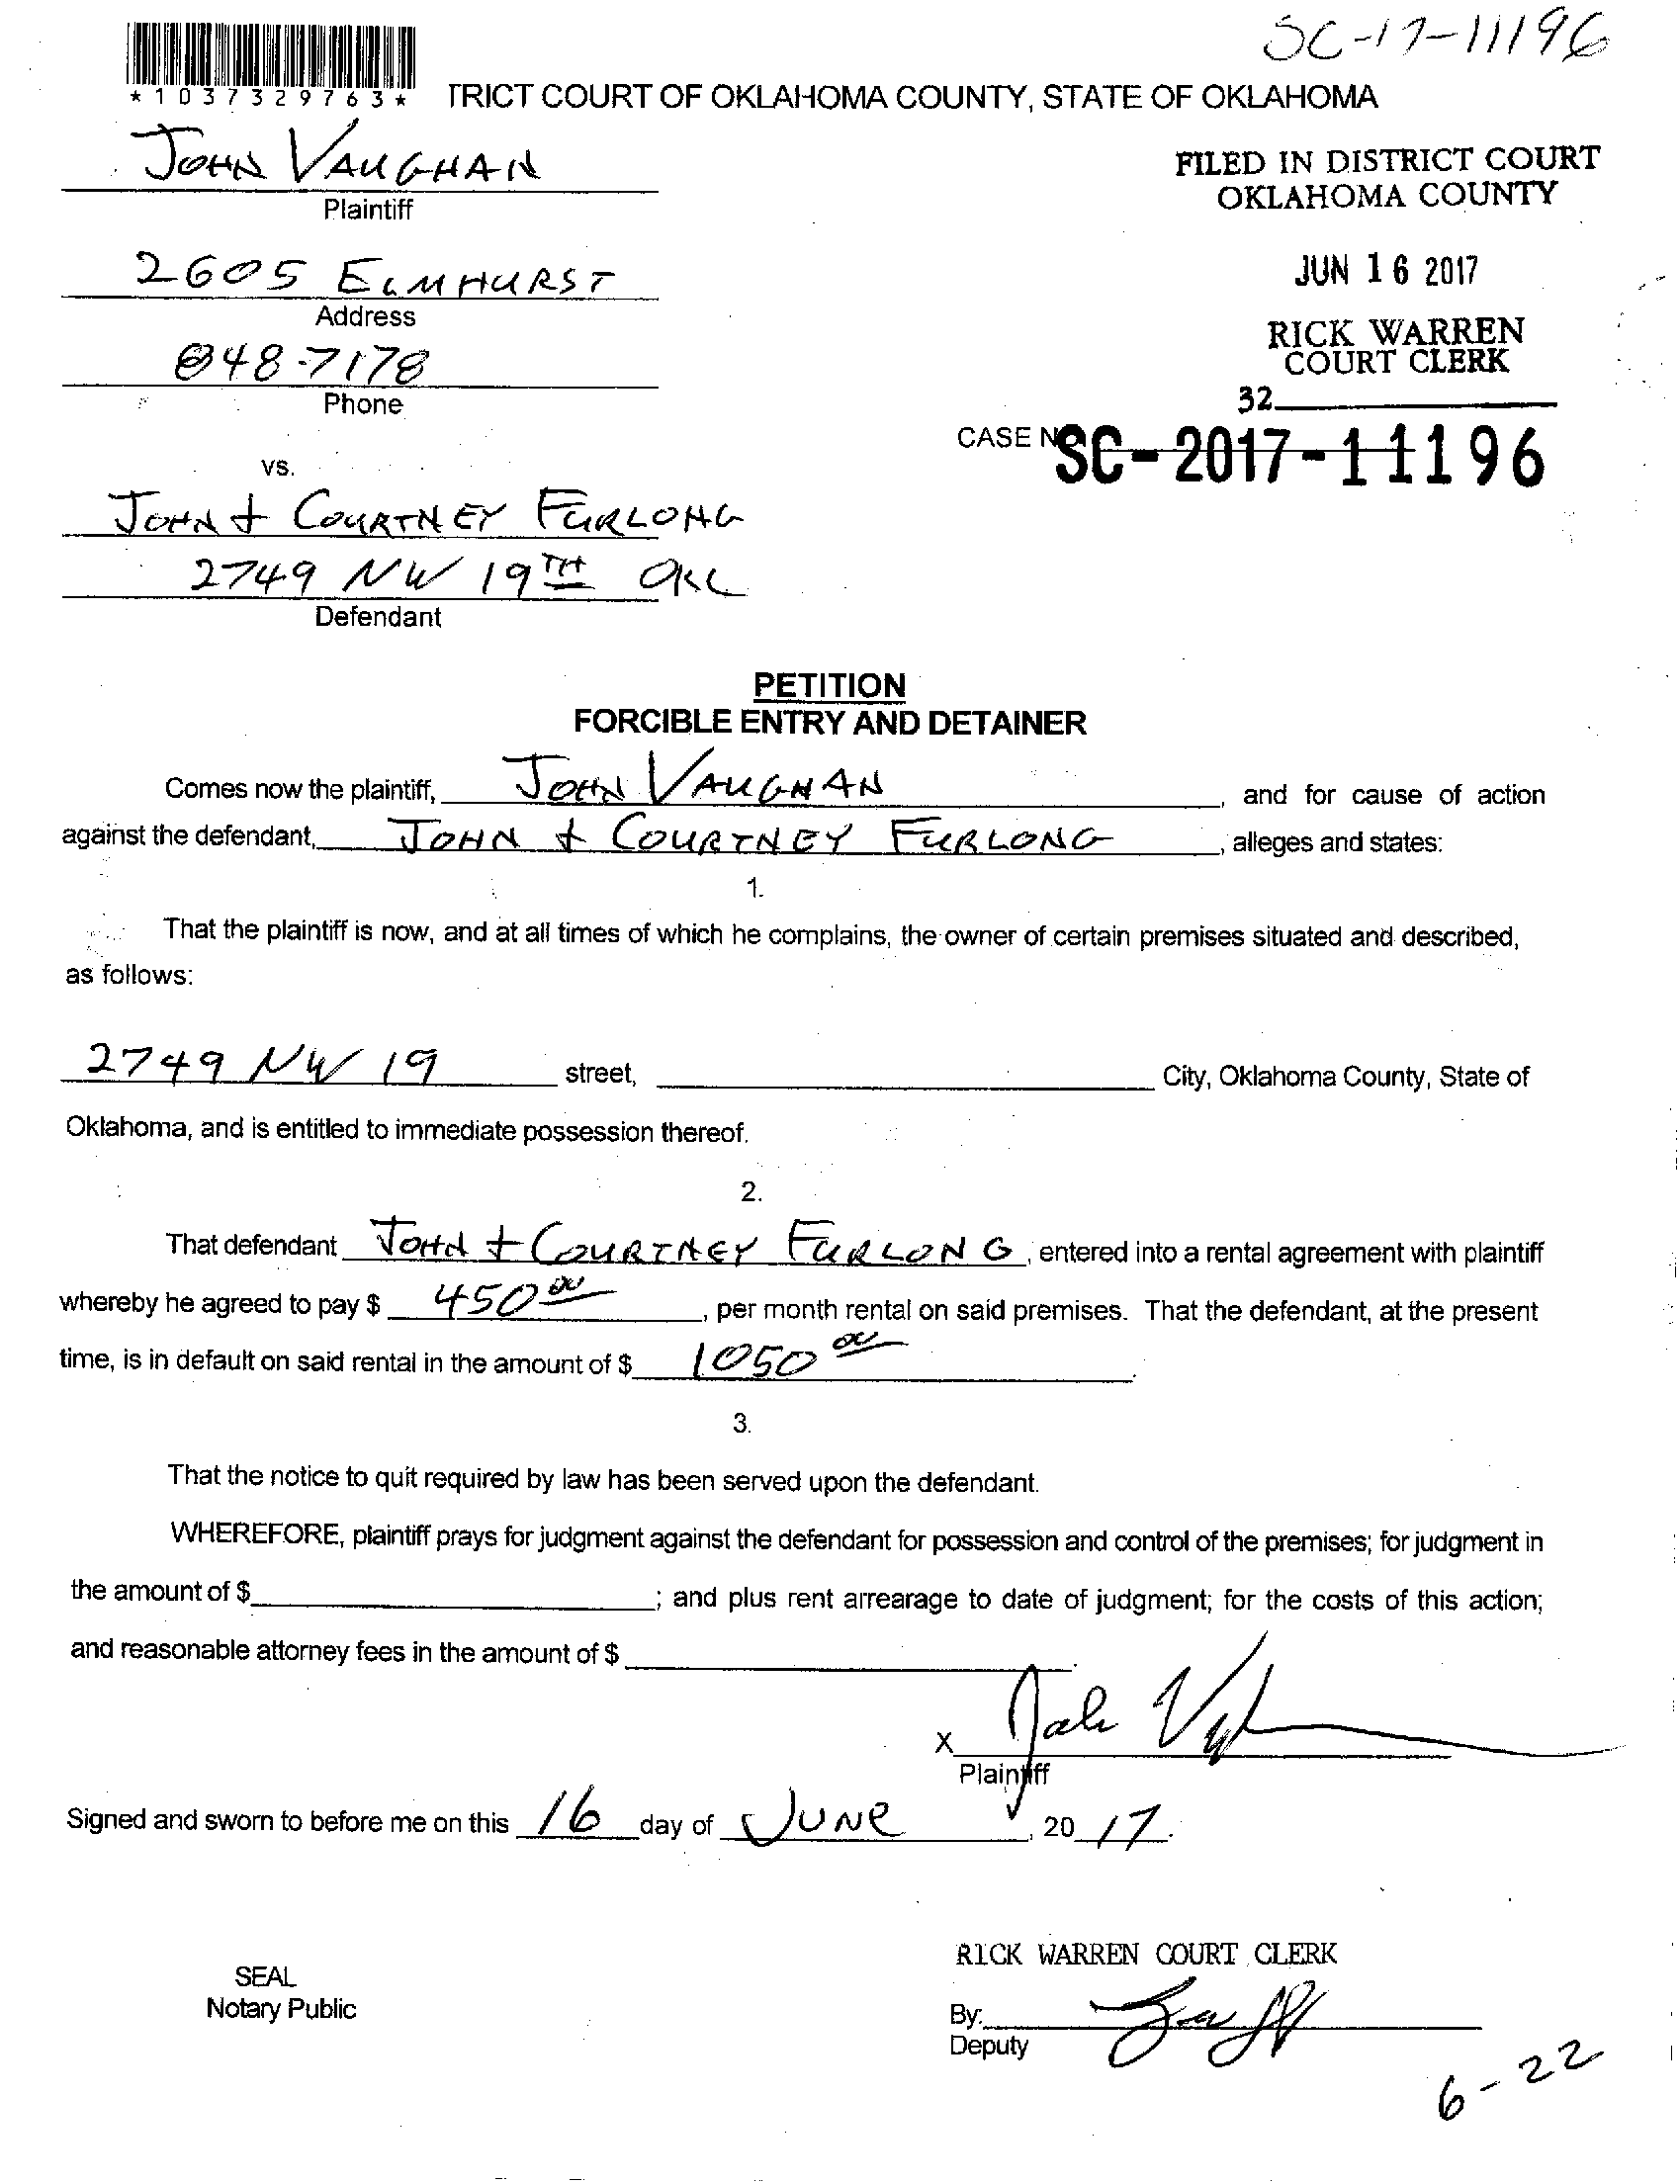 SC-17-11196
*1037329763*
TRICT COURT OF OKLAHOMA COUNTY, STATE OF OKLAHOMA
JOHN VAUGHAN
Plaintiff
FILED IN DISTRICT COURT
OKLAHOMA COUNTY
2605 ELMHURST
Address
JUN 16 2017
848-7178
Phone
RICK WARREN
COURT CLERK
32
CASE NO
SC-2017-11196
vs.
JOHN + COURTNEY FURLONG
2749 NW 19TH OKC
Defendant
PETITION
FORCIBLE ENTRY AND DETAINER
Comes now the plaintiff, JOHN VAUGHAN, and for cause of action
against the defendant, JOHN + COURTNEY FURLONG, alleges and states:
1.
That the plaintiff is now, and at all times of which he complains, the owner of certain premises situated and described,
as follows:
2749 NW 19 street, City, Oklahoma County, State of
Oklahoma, and is entitled to immediate possession thereof.
2.
That defendant JOHN + COURTNEY FURLONG, entered into a rental agreement with plaintiff
whereby he agreed to pay $ 450 00, per month rental on said premises. That the defendant, at the present
time, is in default on said rental in the amount of $ 1050 00.
3.
That the notice to quit required by law has been served upon the defendant.
WHEREFORE, plaintiff prays for judgment against the defendant for possession and control of the premises; for judgment in
the amount of $ ; and plus rent arrearage to date of judgment; for the costs of this action;
and reasonable attorney fees in the amount of $
X
Plaintiff
Signed and sworn to before me on this 16 day of JUNE, 20 17.
RICK WARREN COURT CLERK
SEAL
Notary Public
By:
Deputy
6-22